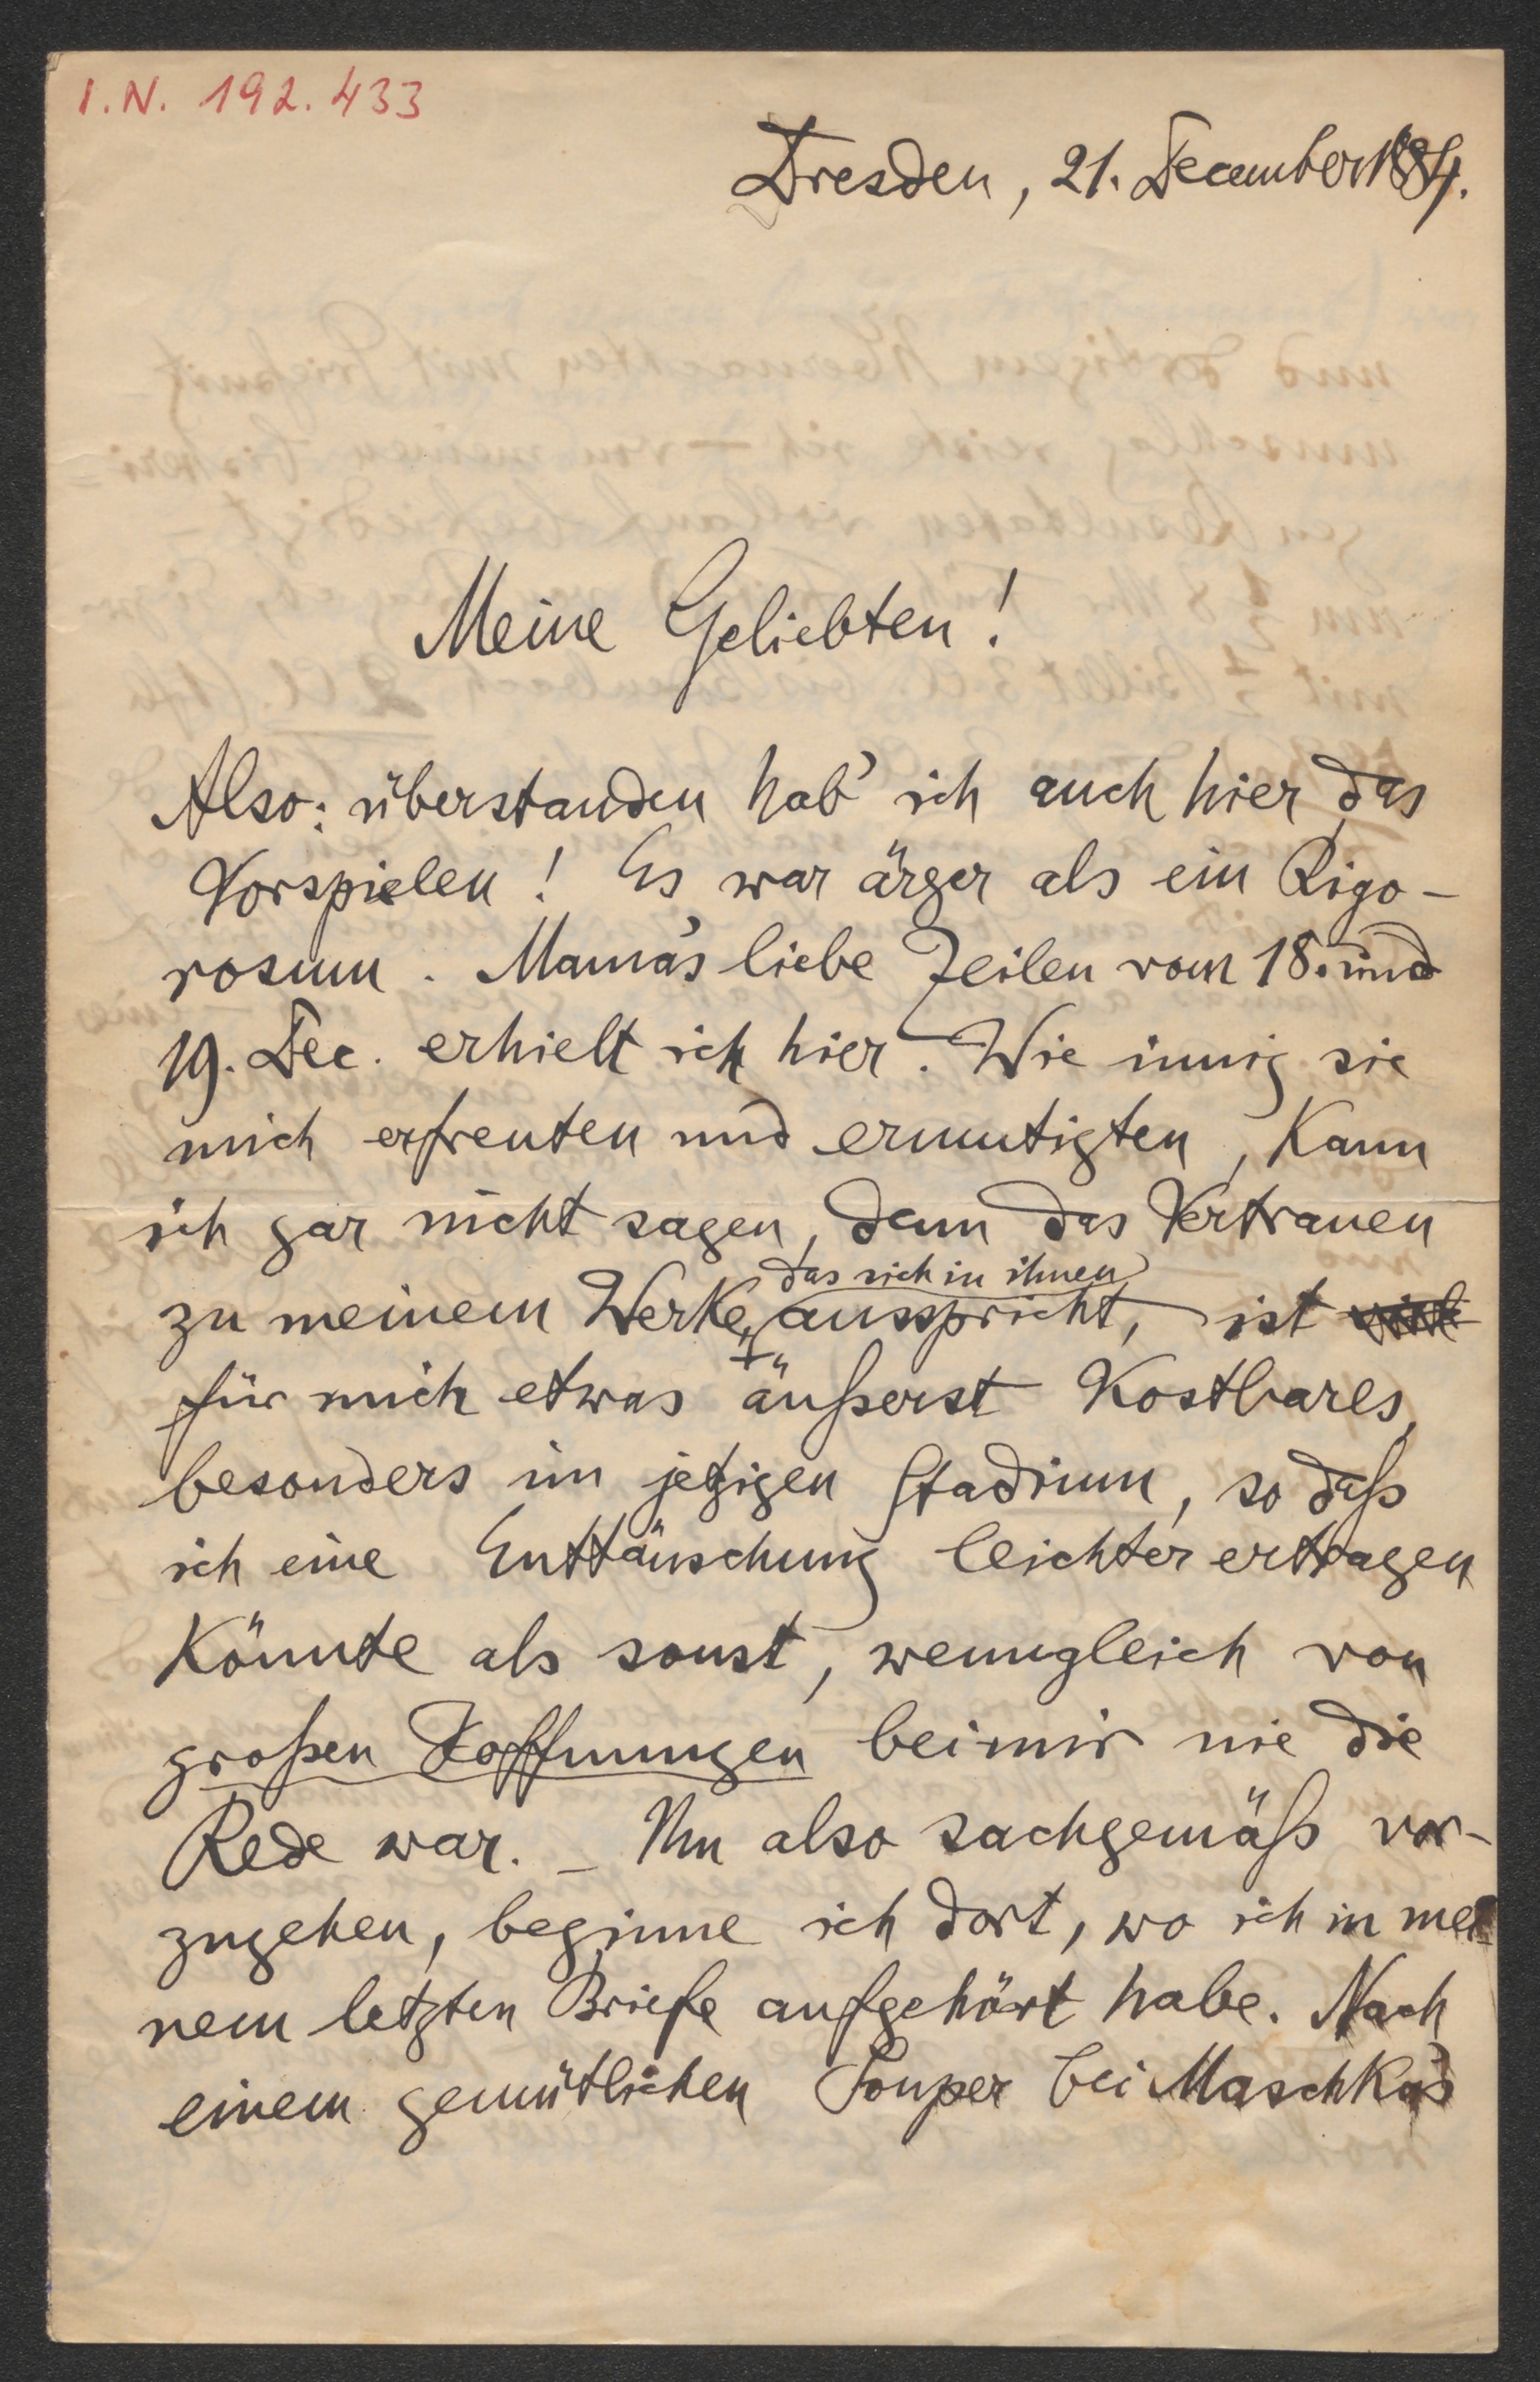 I.N. 192.433
Dresden, 21. December 1884.
Meine Geliebten!
Also: überstanden hab' ich auch hier das
Vorspielen! Es war ärger als ein Rigo-
rosum. Mama's liebe Zeilen vom 18. und
19. Dec. erhielt ich hier. Wie innig sie
mich erfreuten und ermutigten, kann
ich gar nicht sagen, denn das Vertrauen
das sich in ihnen
zu meinem Werke, ausspricht, ist
für mich etwas äußerst Kostbares,
besonders im jetzigen Stadium, so daß
ich eine Enttäuschung leichter ertragen
könnte als sonst, wenngleich von
großen Hoffnungen bei mir nie die
Rede war. – Um also sachgemäß vor-
zugehen, beginne ich dort, wo ich in mei-
nem letzten Briefe aufgehört habe. Nach
einem gemütlichen Souper bei Maschka's